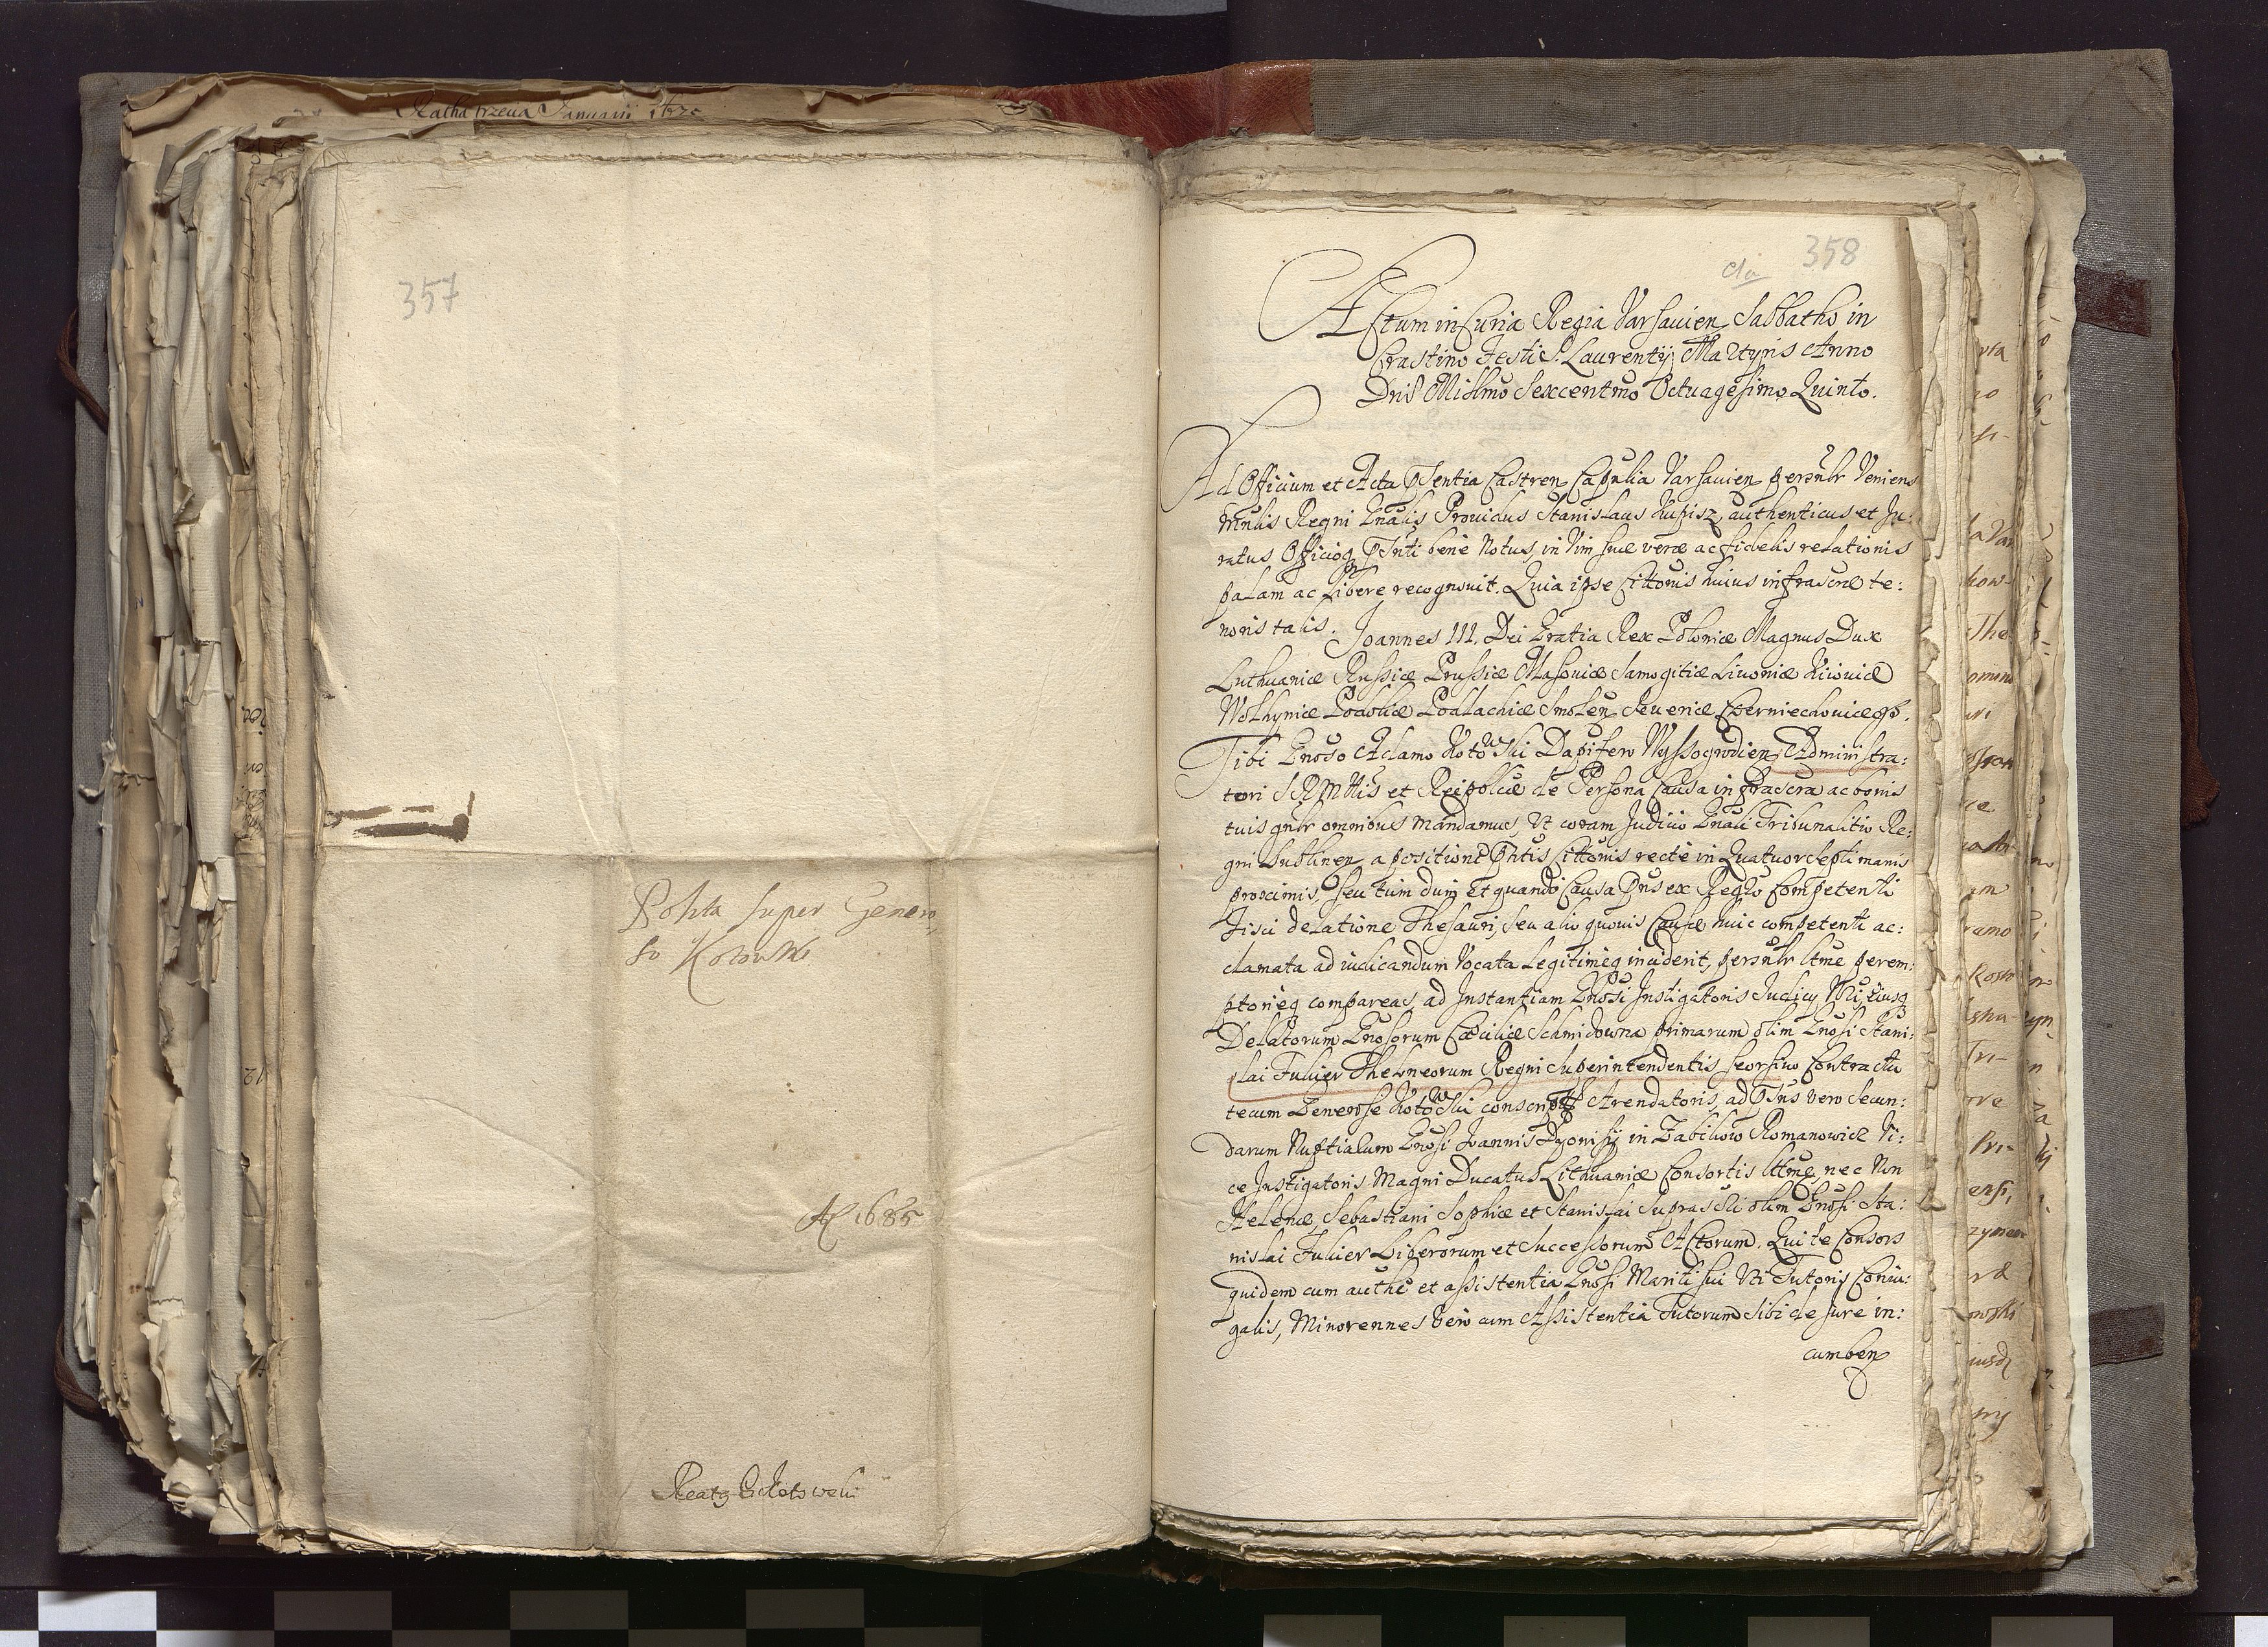 357
Gener
so Kotowski
Ao 1685
358
Actum in Curia Regia Varsavien Sabbatho in
Crastino Festi S. Laurentij Martyris Anno
Dni Millmo Sexcentmo Octuagesimo Quinto.
Ad Officium et Acta Psentia Castren Capnlia Varsavien persnlr Veniens
Mnlis Regni Gnalis Providus Stanislaus authenticus et Ju:
ratus Officioq Psnti bene Notus, in Vim suæ veræ ac fidelis relationis
palam ac libere recognovit. Quia ipse Cittonis huius infrascræ te:
noris talis. Joannes III. Dei Gratia Rex Poloniæ Magnus Dux
Lithuaniæ Russiæ Prussiæ Masoviæ Samogitiæ Livoniæ Kijoviæ
Wolhyniæ Podoliæ Podlachiæ Smolen Severiæ Czerniechoviæq
Tibi Gnoso Adamo Kotowski Dapifero Wyssogrodien Administra:
tori SRMttis et Reipblcæ de Persona Causa infrascra ac bonis
tuis gnlr omnibus Mandamus, Ut coram Judicio Gnali Tribunalitio Re:
gni Lublinen a positione Phtis Cittonis recte in Quatuor Septimanis
proximis, seu tum dum et quando Causa Psns ex Regro Competenti
Fisci delatione Thesauri, seu alio quovis Causæ huic competenti ac:
clamata ad iudicandum Vocata Legitimeq inciderit, persnlr ltme perem:
ptorieq compareas, ad Instantiam Gnosi Instigatoris Judicij Nri, eiusq
Delatorum Gnosorum Cæciliæ Schmidowna primarum olim Gnosi Stani:
slai Fulier Theloneorum Regni Superintendentis seorsivo Contractu
tecum Generose Kotowski Arendatoris, ad Psns vero Secun:
darum Nuptialum Gnosi Joannis Dyonisij in Romanowicz Vi:
ce Instigatoris Magni Ducatus Lithuaniæ Consortis lttmæ, nec Non
Helenæ, Sebastiani Sophiæ et Stanislai Suprascti olim Gnosi Sta:
nislai Fulier Liberorum et Successorum Actorum. Qui te Consors
quidem cum authe et assistentia Gnosi Mariti sui Uti Tutoris Coniu:
galis, Minorennes Vero cum Assistentia Tutorum Sibi de jure in:
cumben